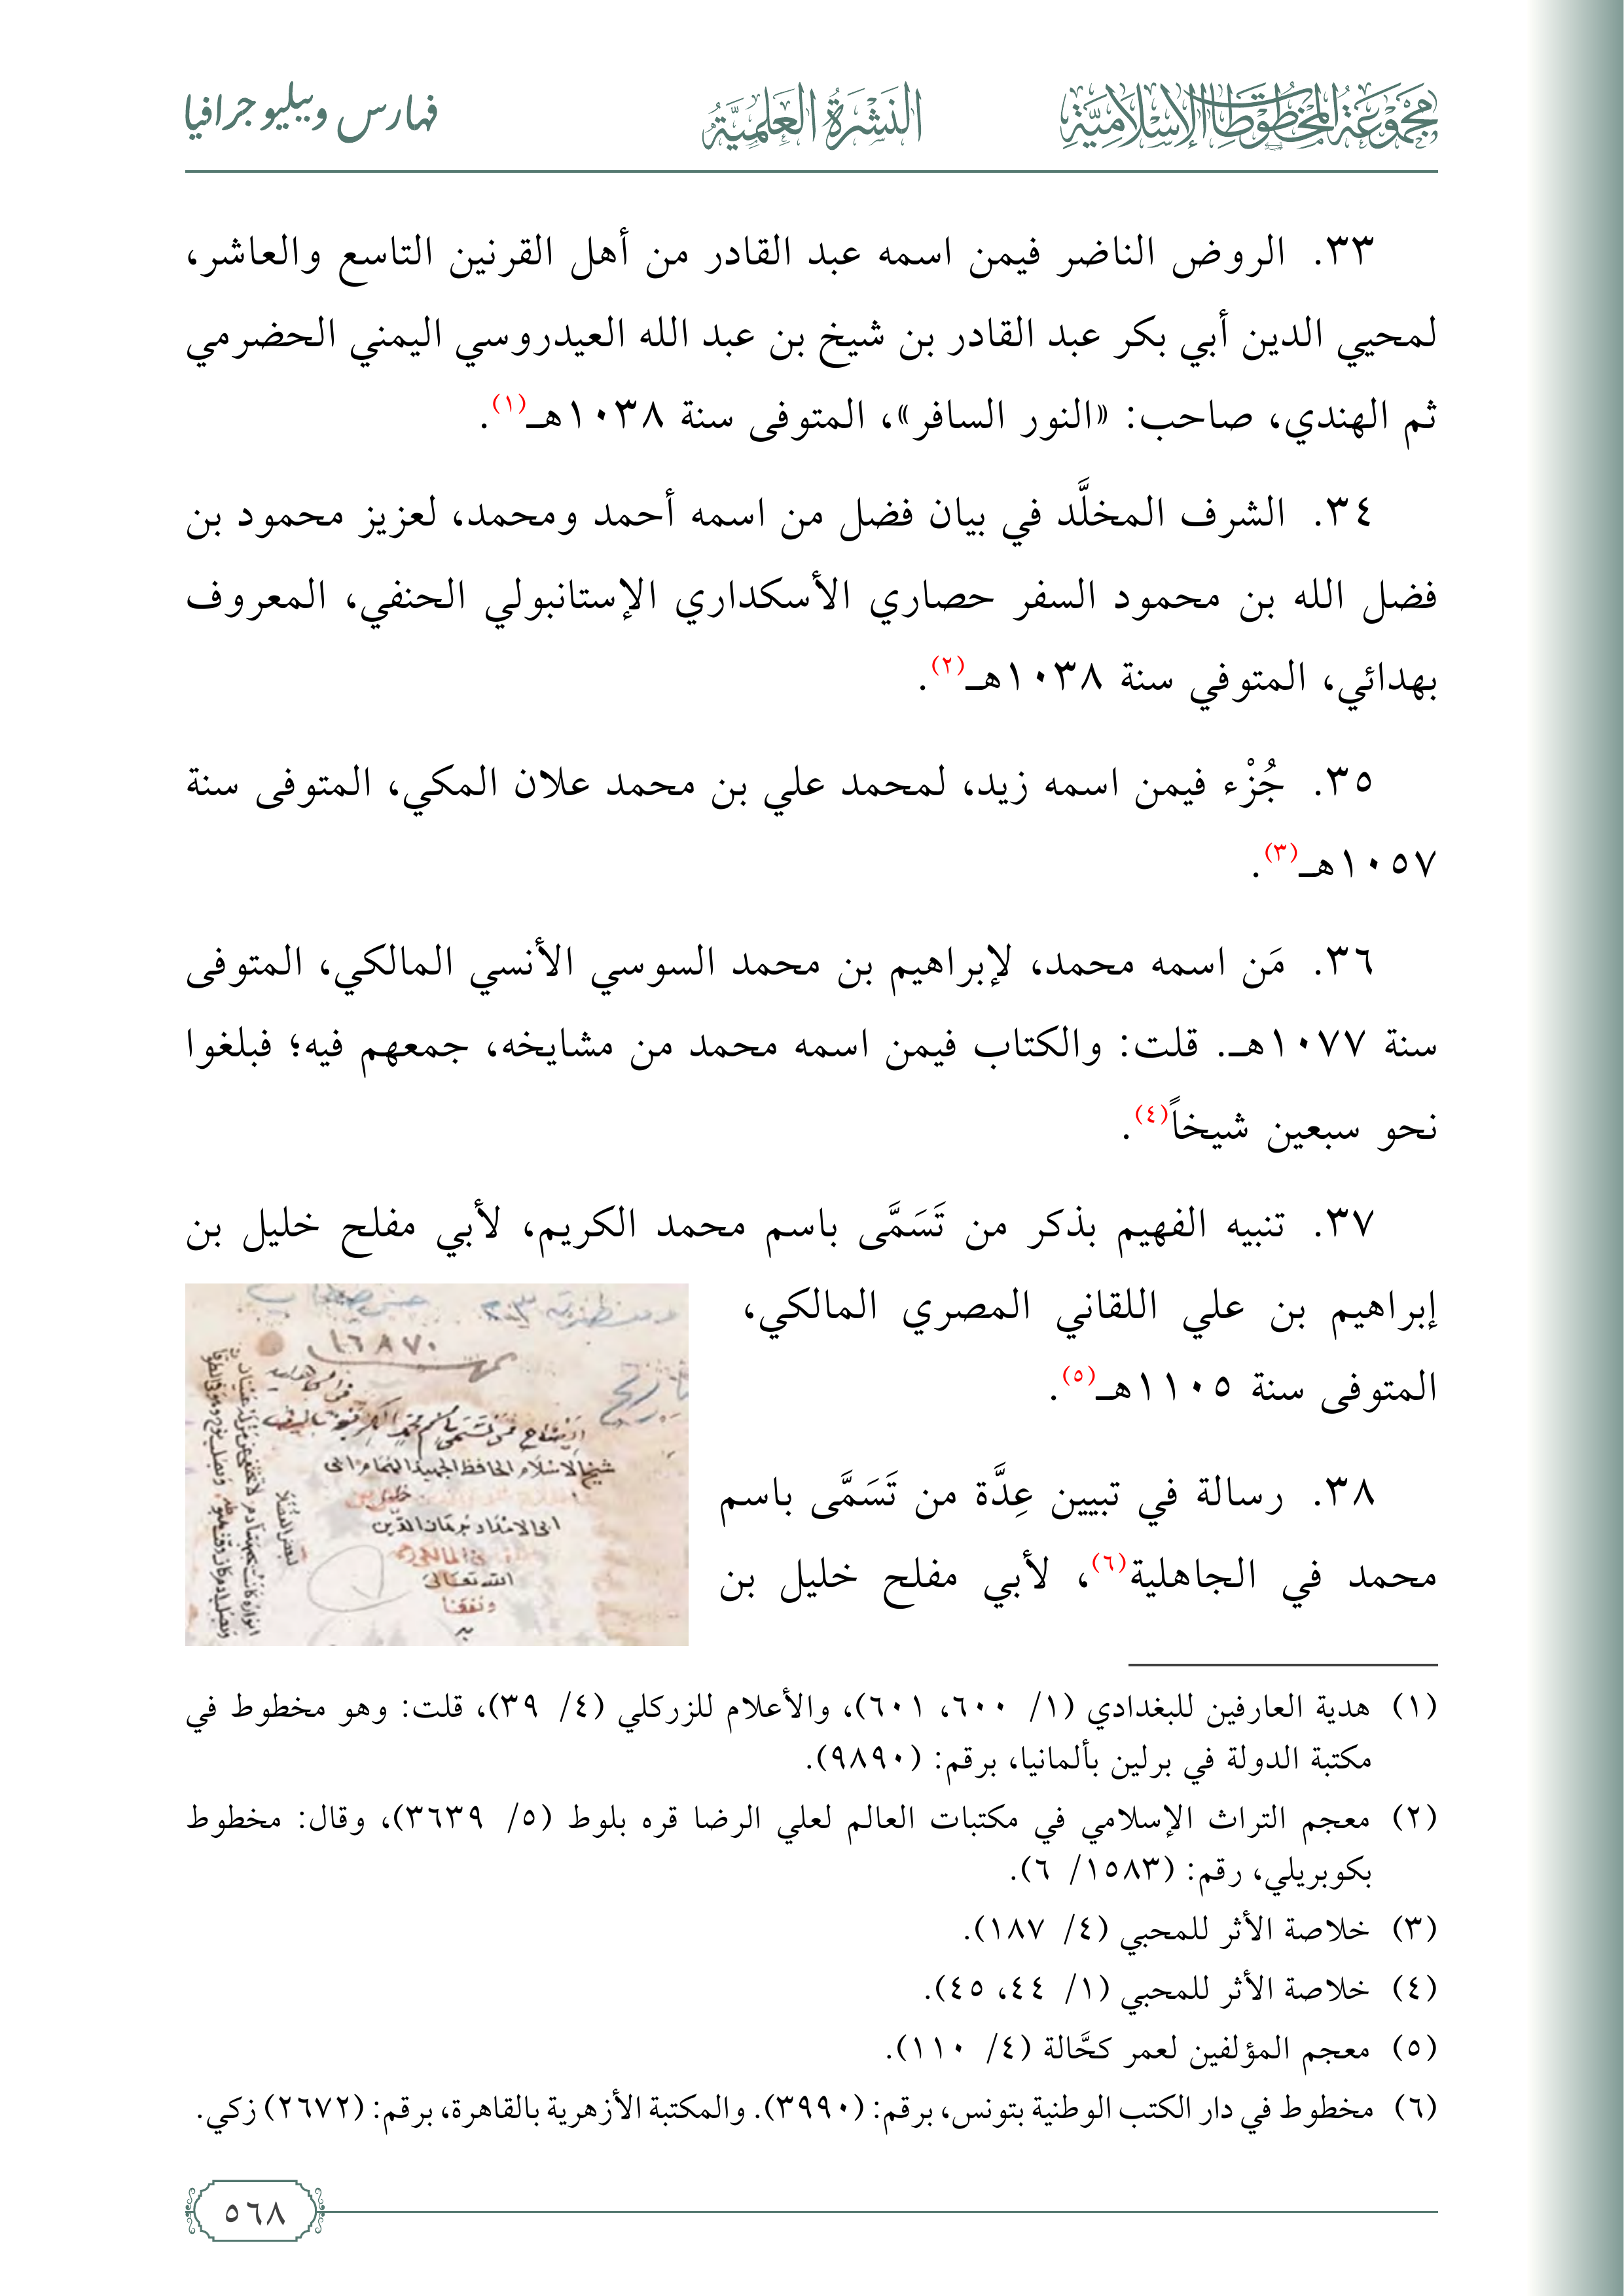 مجموعة المخطوطات الإسلامية
النشرة العلمية
فهارس وبيليوجرافيا
٣٣. الروض الناضر فيمن اسمه عبد القادر من أهل القرنين التاسع والعاشر،
لمحيي الدين أبي بكر عبد القادر بن شيخ بن عبد الله العيدروسي اليمني الحضرمي
ثم الهندي، صاحب: «النور السافر»، المتوفى سنة ١٠٣٨هـ(١).
٣٤. الشرف المخلَّد في بيان فضل من اسمه أحمد ومحمد، لعزيز محمود بن
فضل الله بن محمود السفر حصاري الأسكداري الإستانبولي الحنفي، المعروف
بهدائي، المتوفي سنة ١٠٣٨هـ(٢).
٣٥. جُزْء فيمن اسمه زيد، لمحمد علي بن محمد علان المكي، المتوفى سنة
١٠٥٧هـ(٣).
٣٦. مَن اسمه محمد، لإبراهيم بن محمد السوسي الأنسي المالكي، المتوفى
سنة ١٠٧٧هـ. قلت: والكتاب فيمن اسمه محمد من مشايخه، جمعهم فيه؛ فبلغوا
نحو سبعين شيخاً(٤).
٣٧. تنبيه الفهيم بذكر من تَسَمَّى باسم محمد الكريم، لأبي مفلح خليل بن
إبراهيم بن علي اللقاني المصري المالكي،
المتوفى سنة ١١٠٥هـ(٥).
٣٨. رسالة في تبيين عِدَّة من تَسَمَّى باسم
محمد في الجاهلية(٦)، لأبي مفلح خليل بن
١٦٨٧٠
تاريخ
شيخ الاسلام الحافظ الجهبذ الهمام ابى
خليل بن
ابى الامداد برهان الدين
الله تعالى
ونفعنا
به
(١) هدية العارفين للبغدادي (١/ ٦٠٠، ٦٠١)، والأعلام للزركلي (٤/ ٣٩)، قلت: وهو مخطوط في
مكتبة الدولة في برلين بألمانيا، برقم: (٩٨٩٠).
(٢) معجم التراث الإسلامي في مكتبات العالم لعلي الرضا قره بلوط (٥/ ٣٦٣٩)، وقال: مخطوط
بكوبريلي، رقم: (١٥٨٣/ ٦).
(٣) خلاصة الأثر للمحبي (٤/ ١٨٧).
(٤) خلاصة الأثر للمحبي (١/ ٤٤، ٤٥).
(٥) معجم المؤلفين لعمر كحَّالة (٤/ ١١٠).
(٦) مخطوط في دار الكتب الوطنية بتونس، برقم: (٣٩٩٠). والمكتبة الأزهرية بالقاهرة، برقم: (٢٦٧٢) زكي.
٥٦٨